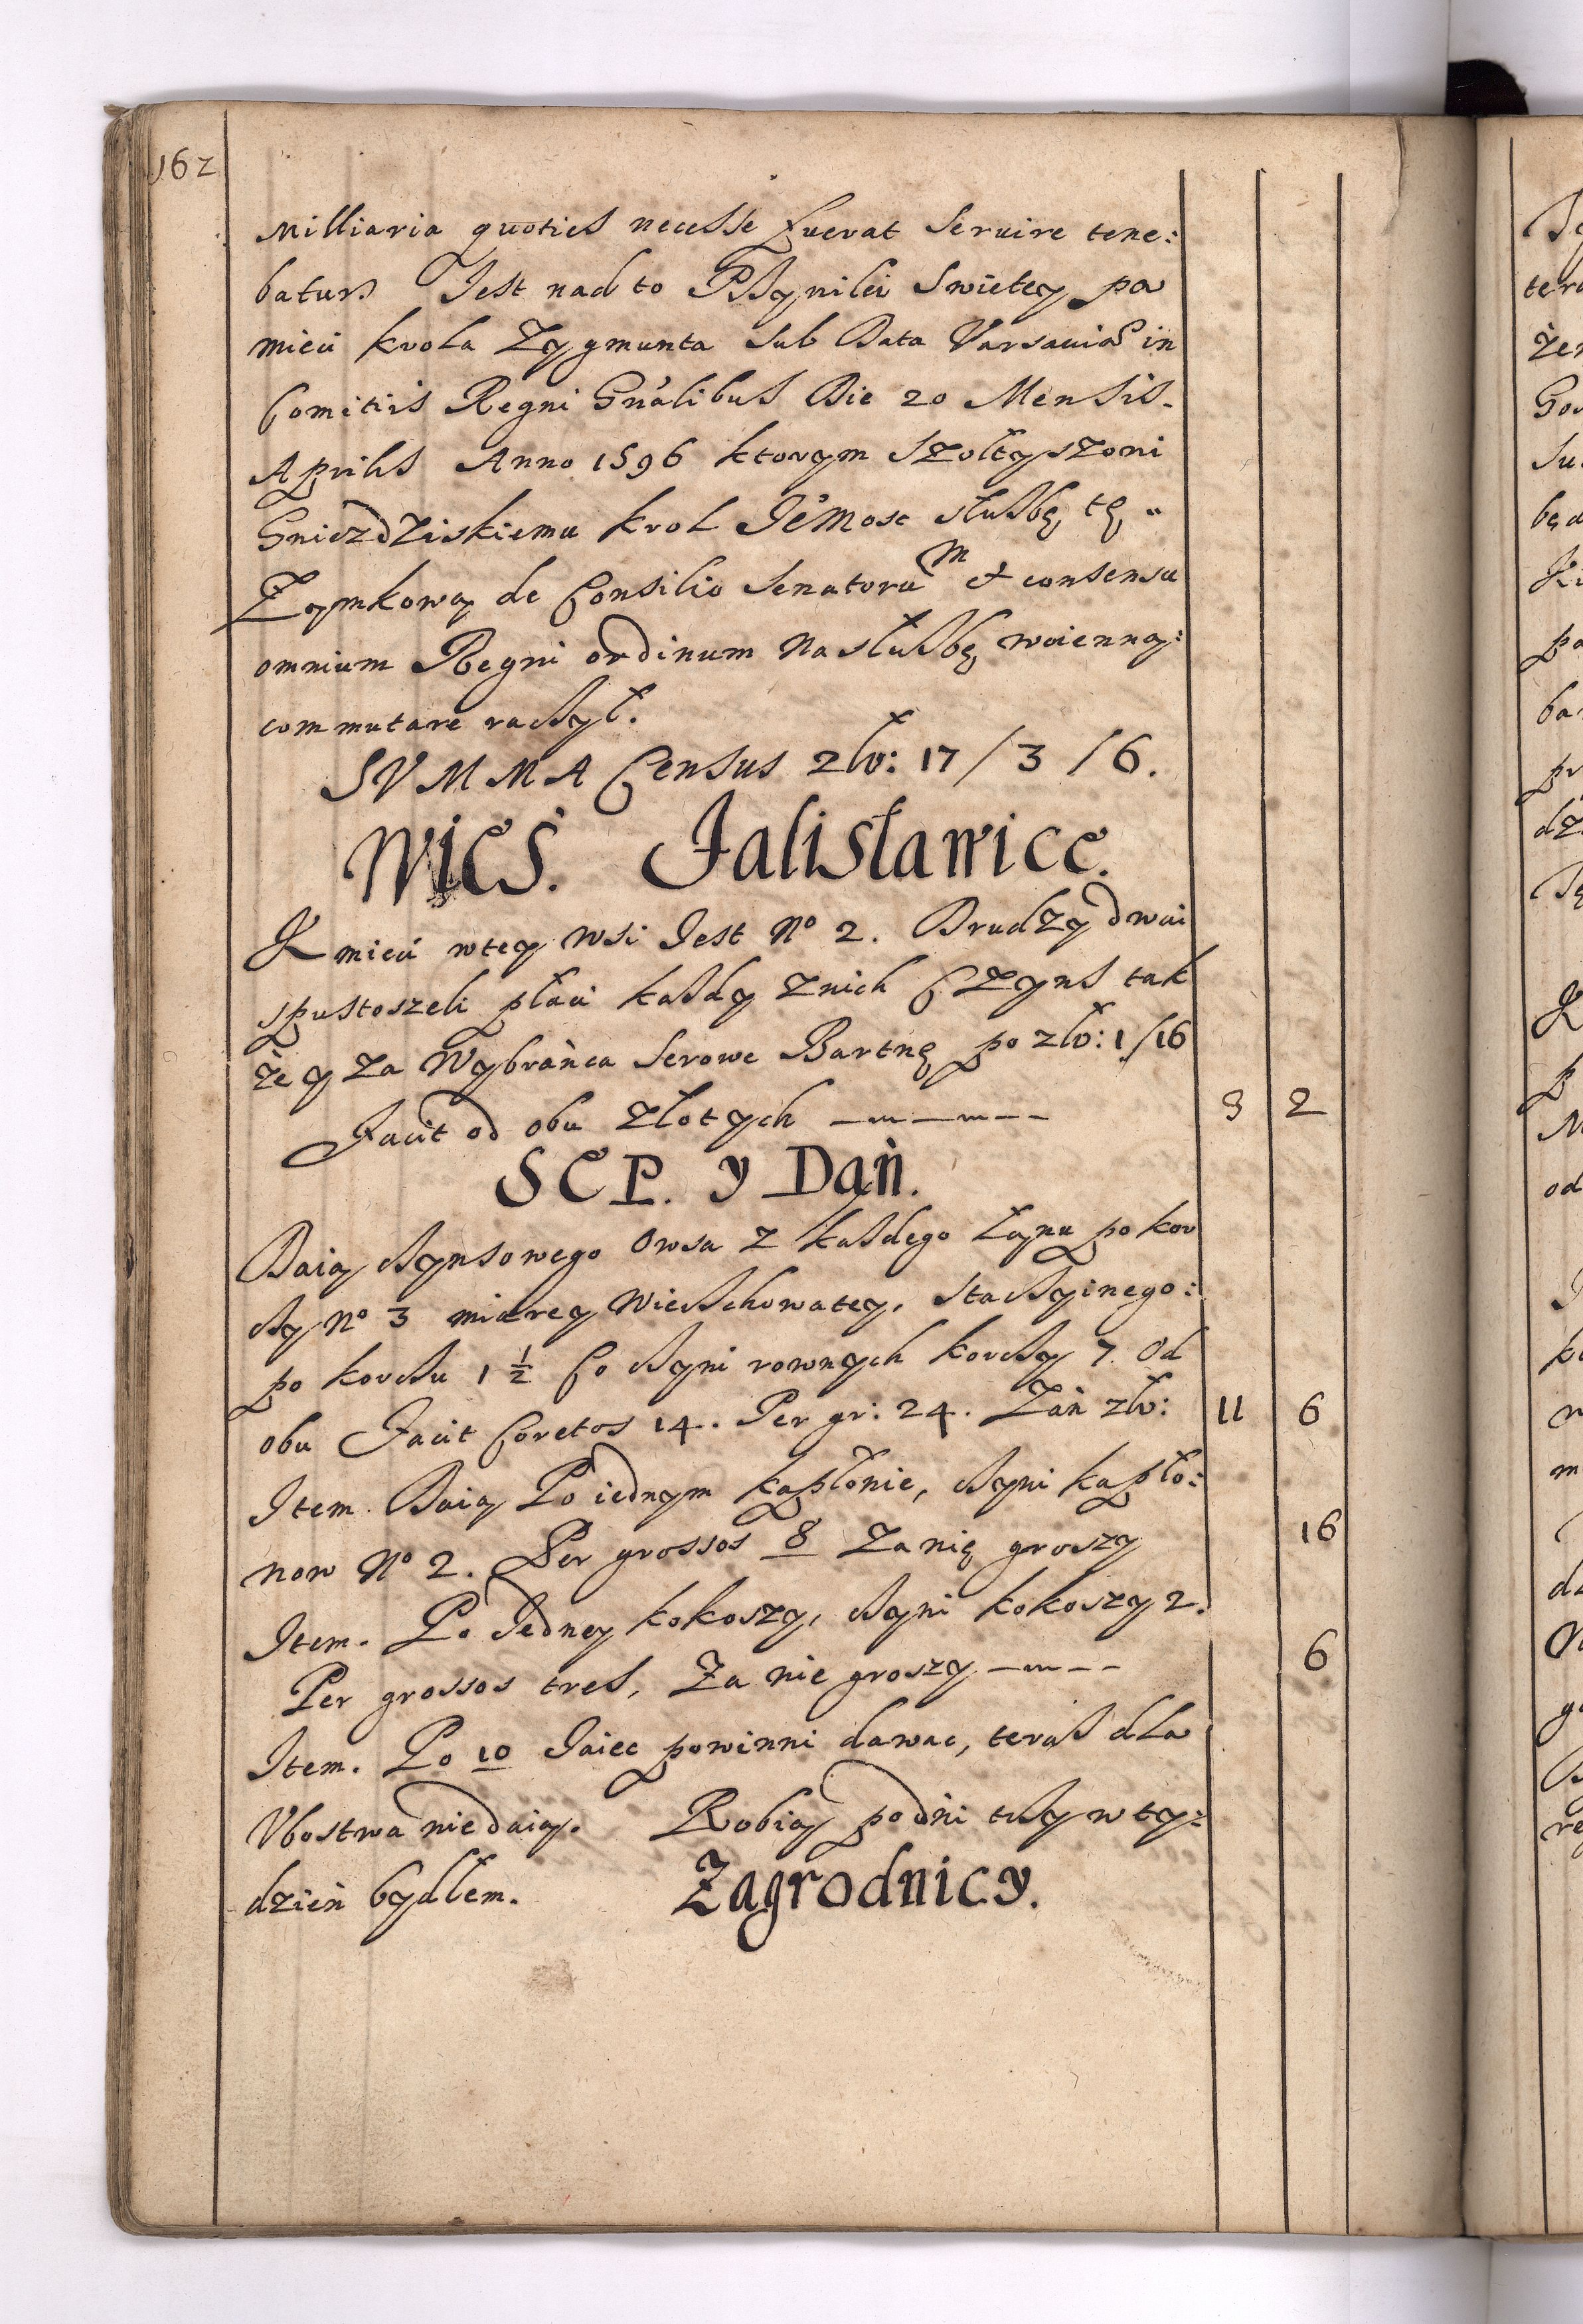 162
Milliaria quoties necesse fuerat seruire tene:
batur. Jest nad to Przywilei Swietey pa
mieci krola Zygmunta sub Data Varsauiae in
Comitiis Regni Gnalibus Die 20 Mensis
Aprilis Anno 1596 ktorym Szołtyszoni
Gniezdziskiemu krol Jemosc służbę tę
Zamkową de Consilio Senatorum et consensu
omnium Regni ordinum na służbę woienną:
commutare raczył.
SVMMA Census zło: 17 / 3 / 6.
WIEŚ. Jalisławice.
Kmieci wtey Wsi Jest No 2. Drudzy dwai
spustoszeli płaci kazdy znich Czyns tak
że y za Wybranca Serowe Bartnę po zło: 1/16
Facit od obu złotych 3 2
SEP. y Dań.
Daią czynsowego Owsa z kazdego łanu po kor
cy No 3 miarey Wierzchowatey, Stacyinego:
po korcu 1 1/2 Co czyni rownych korcy 7. Od
obu Facit Coretos 14. Per gr: 24. Zań zło: 11 6
Item. Daią Po iednym kapłonie, czyni kapło:
now No 2. Per grossos 8 Za nię groszy 16
Item. Po Jedney kokoszy, czyni kokoszy 2.
Per grossos tres, Za nie groszy 6
Item. Po 10 Jaiec powinni dawac, teraz dla
Vbostwa nie daią. Robią po dni trzy w ty:
dzień bydłem. Zagrodnicy.